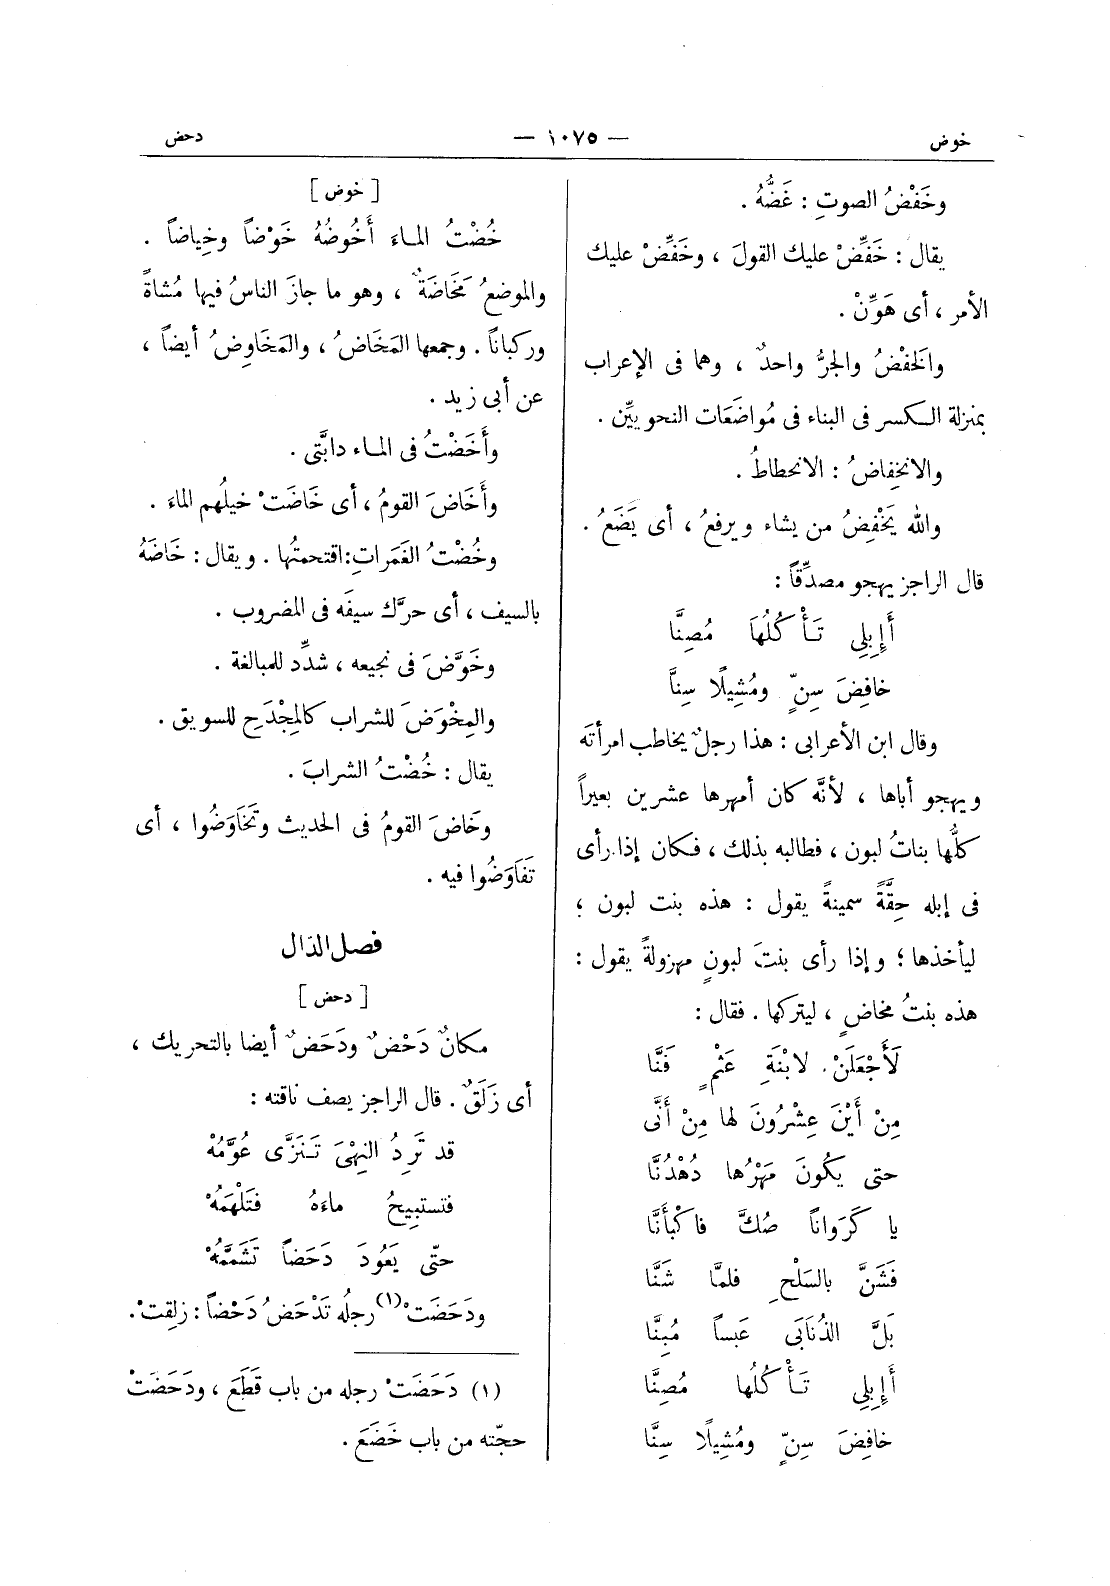 خوض
— ١٠٧٥ —
دحض
وخَفْضُ الصوتِ : غَضُّهُ .
يقال : خَفِّضْ عليك القولَ ، وخَفِّضْ عليك
الأمر ، أى هَوِّنْ .
والخَفْضُ والجرُّ واحدٌ ، وهما فى الإعراب
بمنزلة الكسر فى البناء فى مُواضَعَات النحويِّين .
والانخِفاضُ : الانحطاطُ .
والله يَخْفِضُ من يشاء ويرفعُ ، أى يَضَعُ .
قال الراجز يهجو مصدِّقاً :
أَإِبِلِى تَأْكُلُهَا مُصِنَّا
خافِضَ سِنٍّ ومُشِيلًا سِنَّا
وقال ابن الأعرابى : هذا رجلٌ يخاطب امرأتَه
ويهجو أباها ، لأنَّه كان أمهرها عشرين بعيراً
كلُّها بناتُ لبون ، فطالبه بذلك ، فكان إذا رأى
فى إبله حِقَّةً سمينةً يقول : هذه بنت لبون ؛
ليأخذها ؛ وإذا رأى بنتَ لبونٍ مهزولةً يقول :
هذه بنتُ مخاضٍ ، ليتركها . فقال :
لَأَجْعَلَنْ لابْنَةِ عَثْمٍ فَنَّا
مِنْ أَيْنَ عِشْرُونَ لها مِنْ أَنَّى
حتى يكُونَ مَهْرُها دُهْدُنَّا
يا كَرَوَاناً صُكَّ فاكْبَأَنَّا
فَشَنَّ بالسَلْحِ فلمَّا شَنَّا
بَلَّ الذُنَابَى عَبَساً مُبِنَّا
أَإِبِلِى تَأْكُلُها مُصِنَّا
خافِضَ سِنٍّ ومُشِيلًا سِنَّا
[ خوض ]
خُضْتُ الماءَ أَخُوضُهُ خَوْضاً وخِياضاً .
والموضعُ مَخَاضَةٌ ، وهو ما جازَ الناسُ فيها مُشاةً
وركباناً . وجمعها المَخَاضُ ، والمَخَاوِضُ أيضاً ،
عن أبى زيد .
وأَخَضْتُ فى الماء دابَّتى .
وأَخَاضَ القومُ ، أى خَاضَتْ خيلُهم الماءَ .
وخُضْتُ الغَمَراتِ: اقتحمتُها . ويقال : خَاضَهُ
بالسيف ، أى حرَّك سيفَه فى المضروب .
وخَوَّضَ فى نجيعه ، شدِّد للمبالغة .
والمِخْوَضَ للشراب كالمِجْدَحِ للسويق .
يقال : خُضْتُ الشرابَ .
وخَاضَ القومُ فى الحديث وتَخَاوَضُوا ، أى
تَفَاوَضُوا فيه .
فصل الدَال
[ دحض ]
مكانٌ دَحْضٌ ودَحَضٌ أيضا بالتحريك ،
أى زَلَقٌ . قال الراجز يصف ناقته :
قد تَرِدُ النِهْىَ تَنَزَّى عُوَّمُهْ
فتستبِيحُ ماءَهُ فتَلْهَمُهْ
حتّى يَعُودَ دَحَضاً تَشَمَّمُهْ
ودَحَضَتْ(١) رجلُه تَدْحَضُ دَحْضاً : زلِقتْ .
(١) دَحَضَتْ رجله من باب قَطَعَ ، ودَحَضَتْ
حجّته من باب خَضَعَ .